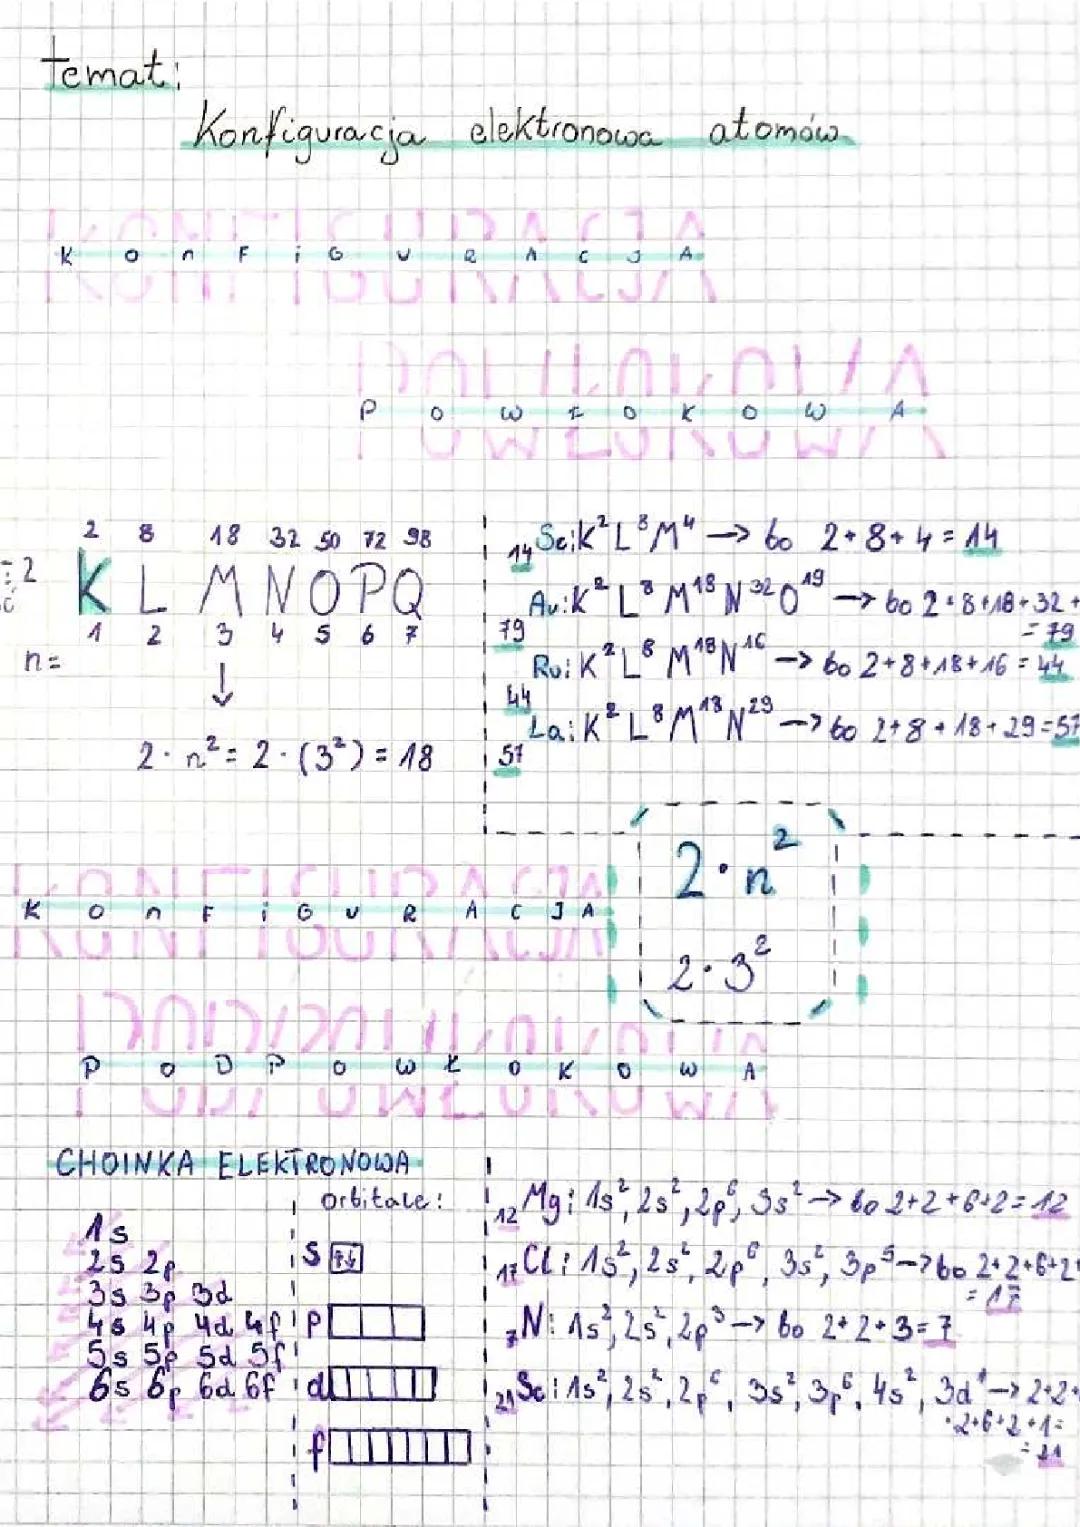 Temat:
Konfiguracja elektronowa atomów
KONFIGURACJA
POWŁOKOWA
2 8 18 32 50 72 98
K L M N O P Q
1 2 3 4 5 6 7
n=
↓
2 · n² = 2 · (3²) = 18
₁₄Se: K² L⁸ M⁴ → bo 2+8+4=14
₇₉Au: K² L⁸ M¹⁸ N³² O¹⁹ → bo 2+8+18+32+
=79
₄₄Ru: K² L⁸ M¹⁸ N¹⁶ → bo 2+8+18+16=44
₅₇La: K² L⁸ M¹⁸ N²⁹ → bo 2+8+18+29=57
2·n²
2·3²
KONFIGURACJA
PODPOWŁOKOWA
CHOINKA ELEKTRONOWA
1s
2s 2p
3s 3p 3d
4s 4p 4d 4f
5s 5p 5d 5f
6s 6p 6d 6f
orbitale:
s ↑↓
p
d
f
₁₂Mg: 1s², 2s², 2p⁶, 3s² → bo 2+2+6+2=12
₁₇Cl: 1s², 2s², 2p⁶, 3s², 3p⁵ → bo 2+2+6+2+
=17
₇N: 1s², 2s², 2p³ → bo 2+2+3=7
₂₁Sc: 1s², 2s², 2p⁶, 3s², 3p⁶, 4s², 3d¹ → 2+2+
+2+6+2+1=
=21